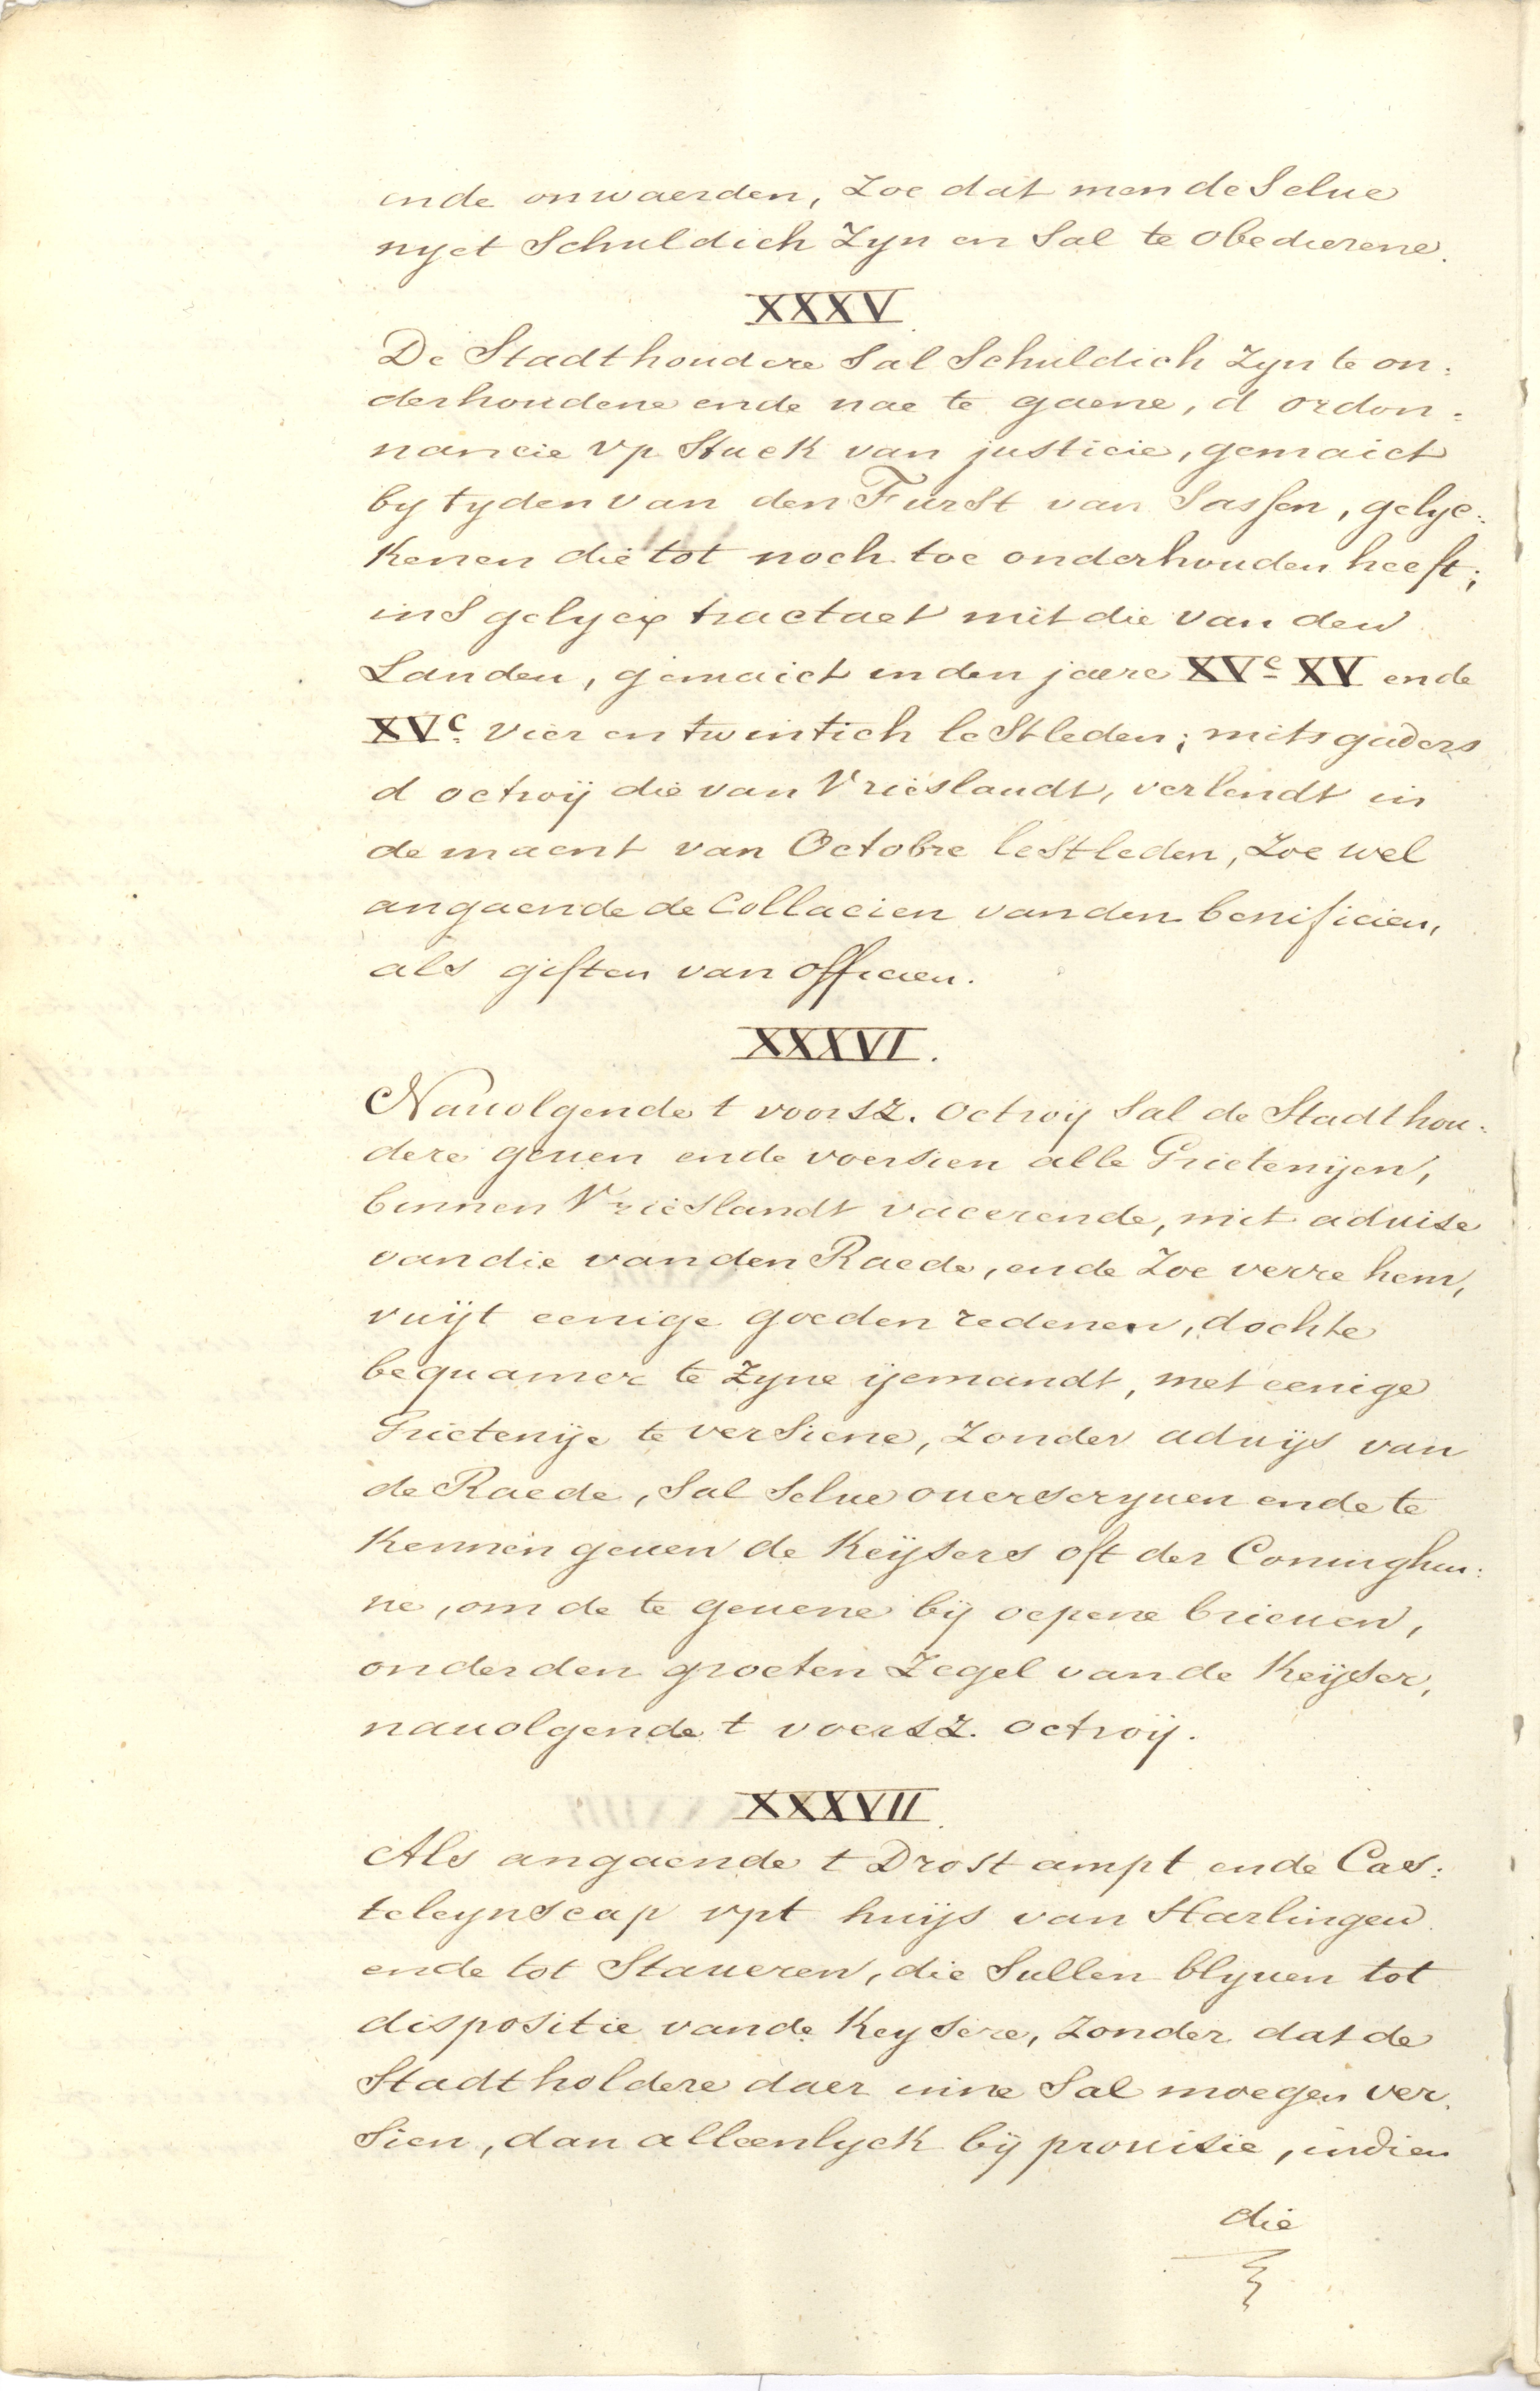 ende onwaerden, Zoe dat men de Selue
nyet Schuldich Zyn en Sal te obedierene.
XXXV.
De Stadthoudere Sal Schuldich Zyn te on:
derhoudene ende nae te gaene, d ordon:
nancie vp Stuck van justicie, gemaict
by tyden van den Furst van Sassen, gelyc:
Kenen die tot noch toe onderhouden heeft;
insgelycx tractaet mit die van den
Landen, gemaict in den jaere XVc XV ende
XVc vier en twintich lestleden; mitsgaders
d octroij die van Vrieslandt, verlendt in
de maent van Octobre lestleden, Zoe wel
angaende de Collacien vanden benificien,
als giften van officien.
XXXVI.
Nauolgende t voorsz. octroij Sal de Stadthou:
dere geuen ende voersien alle Grietenijen,
binnen Vrieslandt vacerende, mit aduise
van die van den Raede, ende Zoe verre hem,
vuijt eenige goeden redenen, dochte
bequamer te Zyne ijemandt, met eenige
Grietenije te versiene, Zonder aduijs van
de Raede, Sal Selue ouerscryuen ende te
Kennen geuen de Keijsers oft der Coninghin:
ne, om de te geuene bij oepene brieuen,
onder den grooten Zegel van de Keijser,
nauolgende t voersz. octroij.
XXXVII.
Als angaende t Drost ampt ende Cas:
teleynscap vpt huijs van Harlingen
ende tot Staueren, die Sullen blyuen tot
dispositie van de Keysere, Zonder dat de
Stadtholdere daer inne Sal moegen ver:
Sien, dan alleenlyck bij prouisie, indien
die